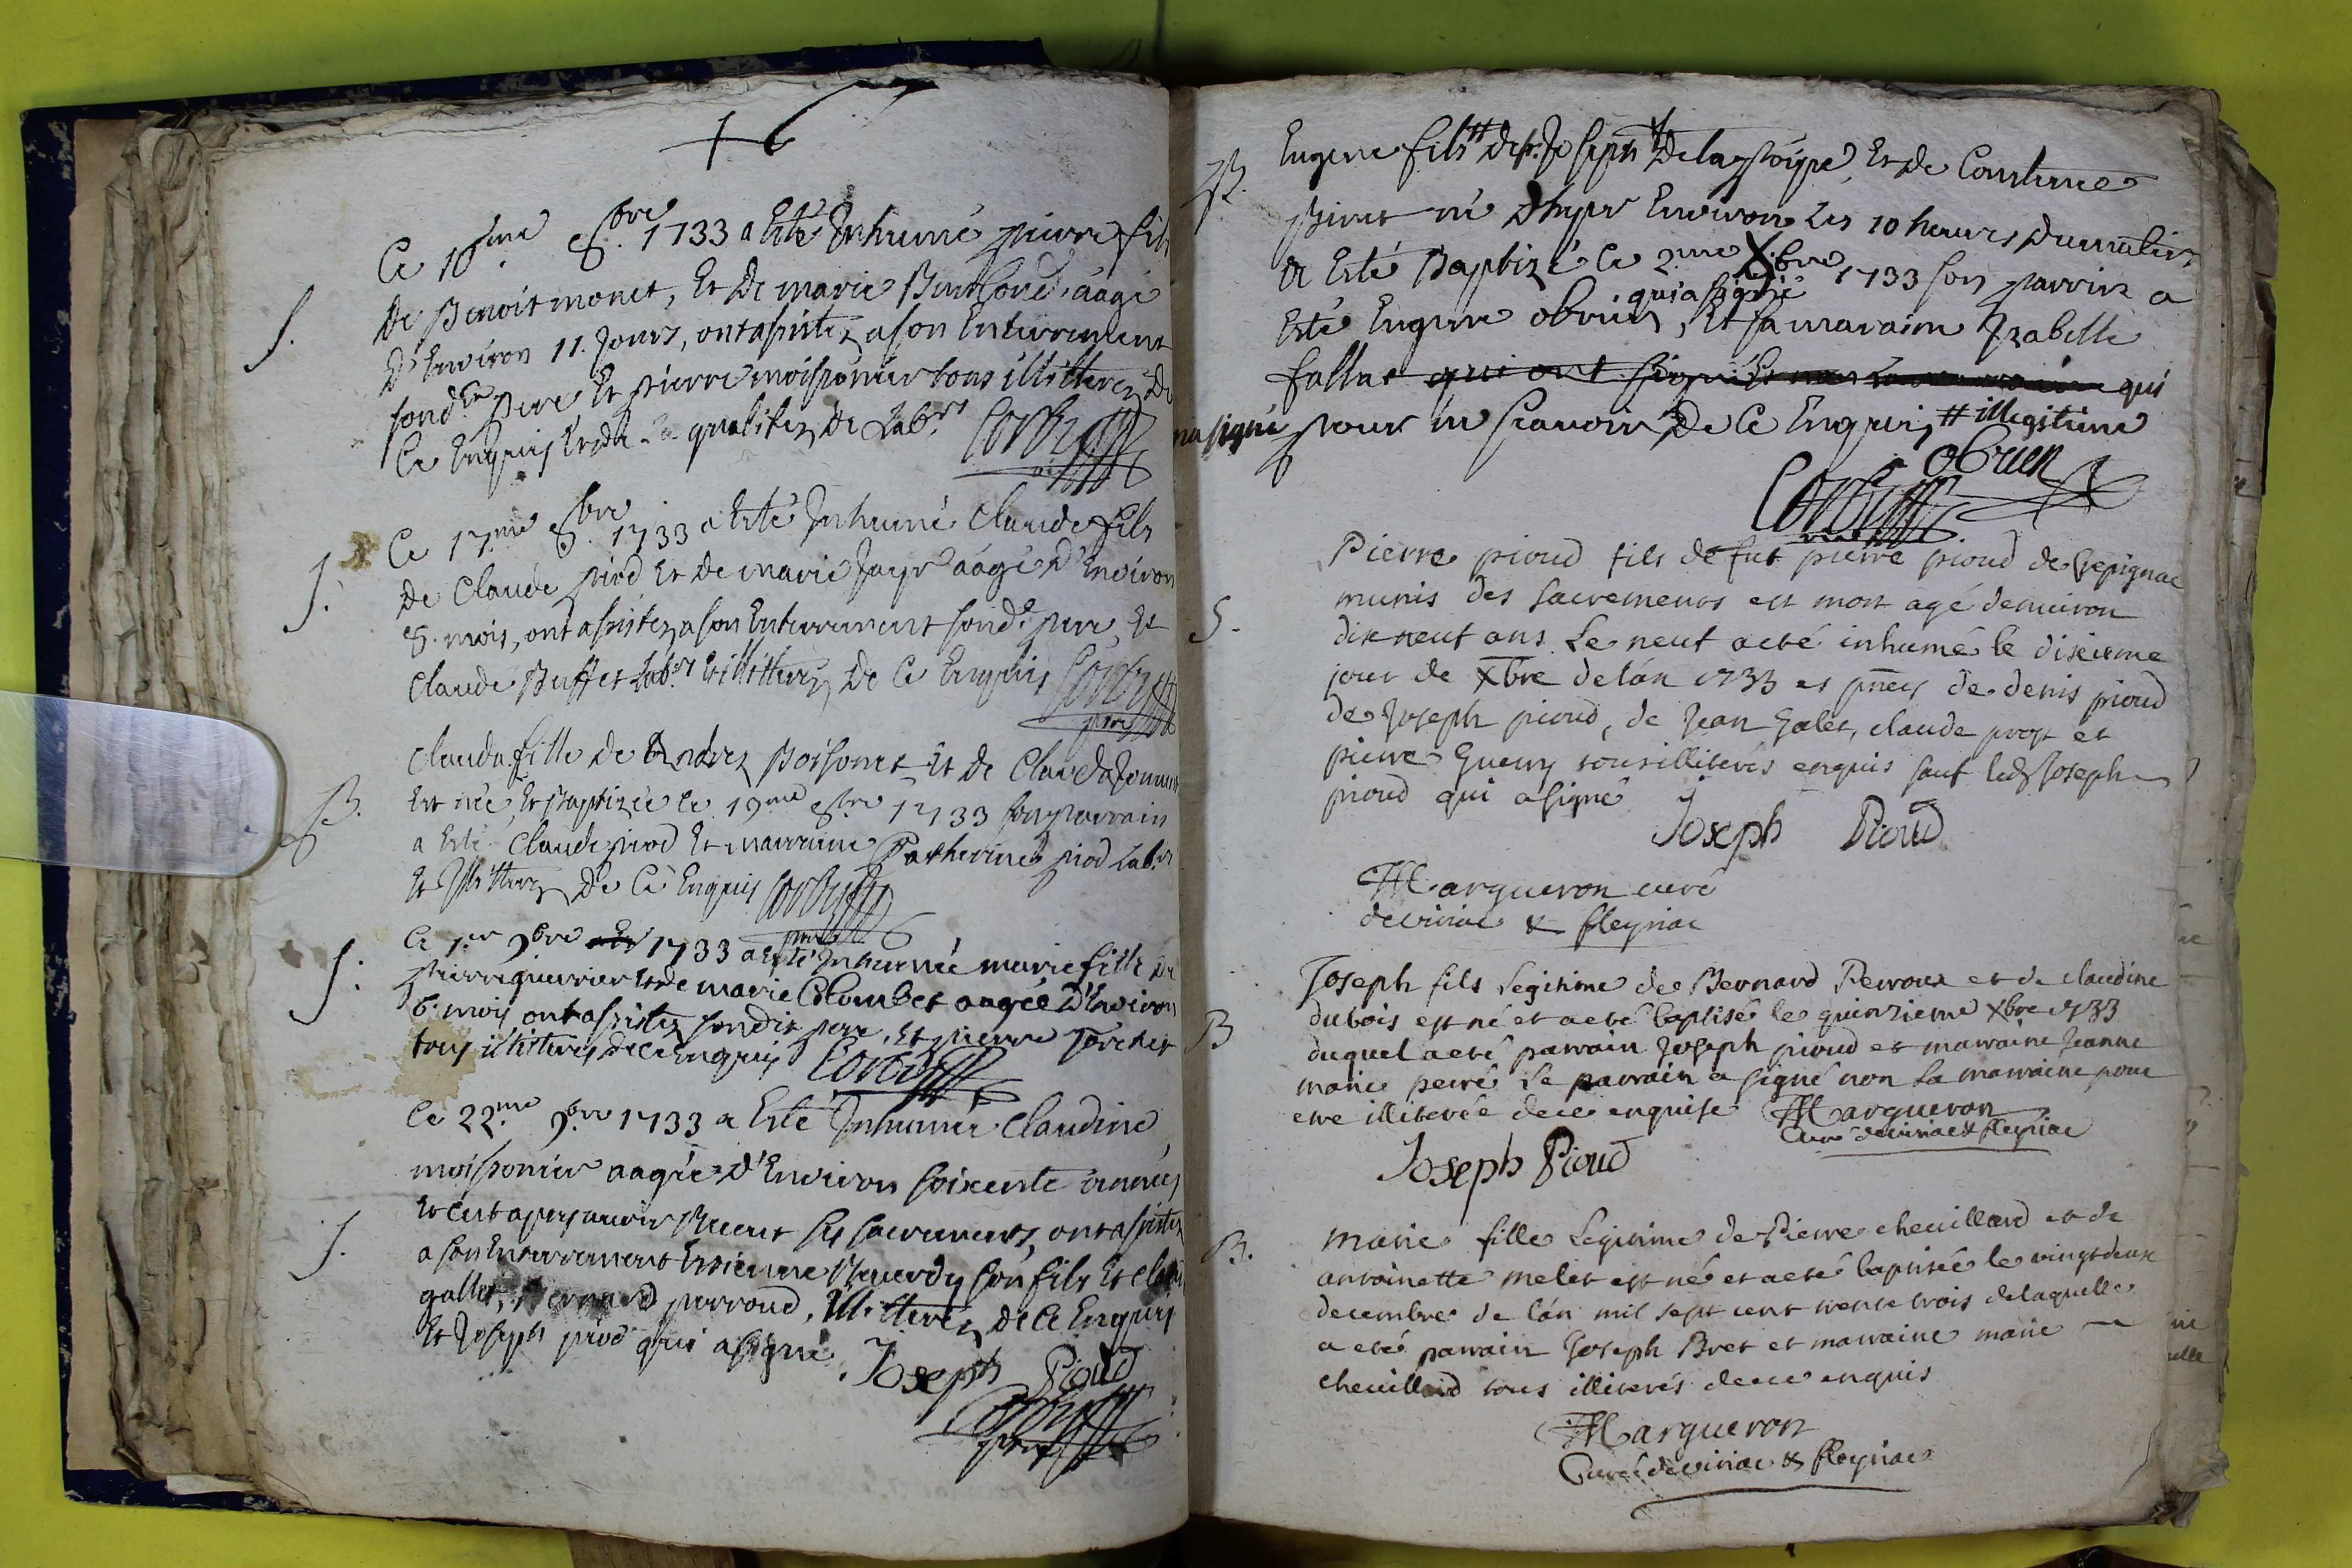 Ce 16.me 8.bre 1733 a Esté Inhumé pierre fils
S. de Benoit monet, Et De marie aagé
D'Environ 11. Jours, ont assistez a son Enterrement
sond. pere, Et pierre moissonier tous illitterez De
Ce Enquis Et de la qualitez de Lab.rs
Ce 17.me 8.bre 1733 a Esté Inhumé Claude fils
S. De Claude piod Et De marie Jayr aagé D'Environ
8. mois, ont assistez a son Enterrement sond. pere, Et
Claude Buffet Lab.rs Et illitterez De Ce Enquis
Clauda fille de Andrez Et De Clauda
B. Est née, Et Baptizée Ce 19.me 8.bre 1733 son parrain
a Esté Claude piod Et marraine Catherine piod Lab.rs
Et Illitterez De Ce Enquis
Ce 1.er 9.bre 1733 a Esté Inhumée marie fille De
S. pierre guerrier Et de marie Colombet aagée D'Environ
6. mois ont assistez sondit pere, Et pierre
tous illitterez de Ce Enquis
Ce 22.me 9.bre 1733 a Esté Inhumée Claudine
moissonier aagée D'Environ soixente années
S. Et C'est apres avoir Receut ses sacrements, ont assistez
a son Enterrement Estienne son fils Et
gallet, Bernard perroud, Illitterez de Ce Enquis
Et Joseph piod qui a signé. Joseph Pioud
B. Eugene fils # de s.r Joseph Et De Constance
né D'hyer Environ Les 10 heures Du matin
a Esté Baptizé Ce 2.me X.bre 1733 son parrin a
qui a signé
Esté Eugene obrien, Et sa maraine Izabelle
fallat qui ont signé Et non la marraine qui
na signé pour ne scavoir De Ce Enquis # illegitime
obrien
Pierre pioud fils de fut pierre pioud de
munis des sacrements est mort agé denviron
S. dix neuf ans Le neuf a eté inhumé le dixieme
jour de Xbre de lán 1733 es pñces de denis pioud
de Joseph pioud, de Jean Galet, claude prost et
pierre Guerry tous illiterés enquis sauf led Joseph
pioud qui a signé
Joseph Pioud
Margueron curé
de viriac & fleyriac
Joseph fils Legitime de Bernard Perroux et de claudine
B dubois est né et a eté baptisé le quinzieme Xbre 1733
duquel a eté parrain Joseph pioud et marraine Jeanne
marie perré Le parrain a signé non La marraine pour
etre illiterée de ce enquise Margueron
Curé de viriac & fleyriac
Joseph Pioud
B. marie fille Legitime de Pierre cheuillard et de
antoinette melet est né et a eté baptisée le vingt deux
decembre de lán mil sept cent trente trois delaquelle
a eté parrain Joseph Bret et marraine marie
cheuillard tous illiterés de ce enquis
Margueron
Curé de viriac & fleyriac